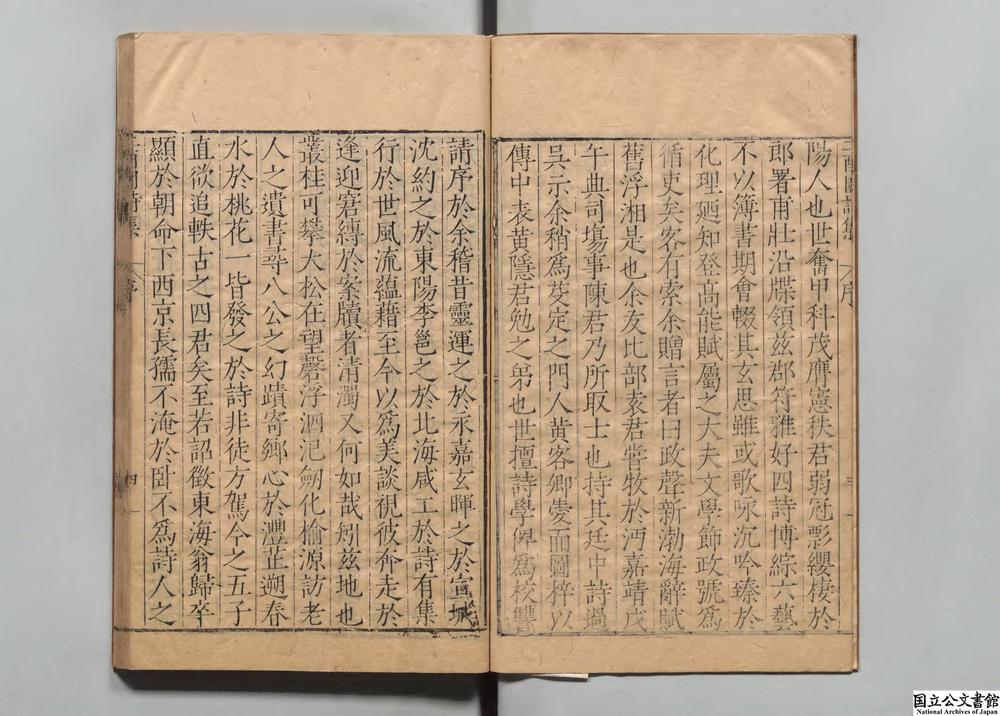 陽人也世奮甲科茂膺憲秩君弱冠影纓棲於
郎署甫壯沿牒領茲郡符雅好四詩博綜六藝
不以簿書期會輟其玄思雖或歌咏沉吟臻於
化理廼知登高能賦屬之大夫文學飾政號為
循吏矣客有索余贈言者曰政聲新渤海辭賦
舊浮湘是也余友比部袁君甞牧於沔嘉靖戊
午典司塲事陳君乃所取士也持其廷中詩過
吳示余稍為芟定之門人黃客卿爰而圖梓以
傳中表黃隱君勉之弟也世擅詩學俾為校讐
序
三
請序於余稽昔靈運之於永嘉玄暉之於宣城
沈約之於東陽李邕之於北海咸工於詩有集
行於世風流蘊藉至今以為美談視彼奔走於
逢迎窘縛於案牘者清濁又何如哉矧茲地也
叢桂可攀大松在望磬浮泗汜劒化榆源訪老
人之遺書尋八公之幻蹟寄鄉心於灃芷遡春
水於桃花一皆發之於詩非徒方駕今之五子
直欲追軼古之四君矣至若詔徵東海翁歸卒
顯於朝命下西京長孺不淹於卧不為詩人之
詩集
序
四
国立公文書館
National Archives of Japan